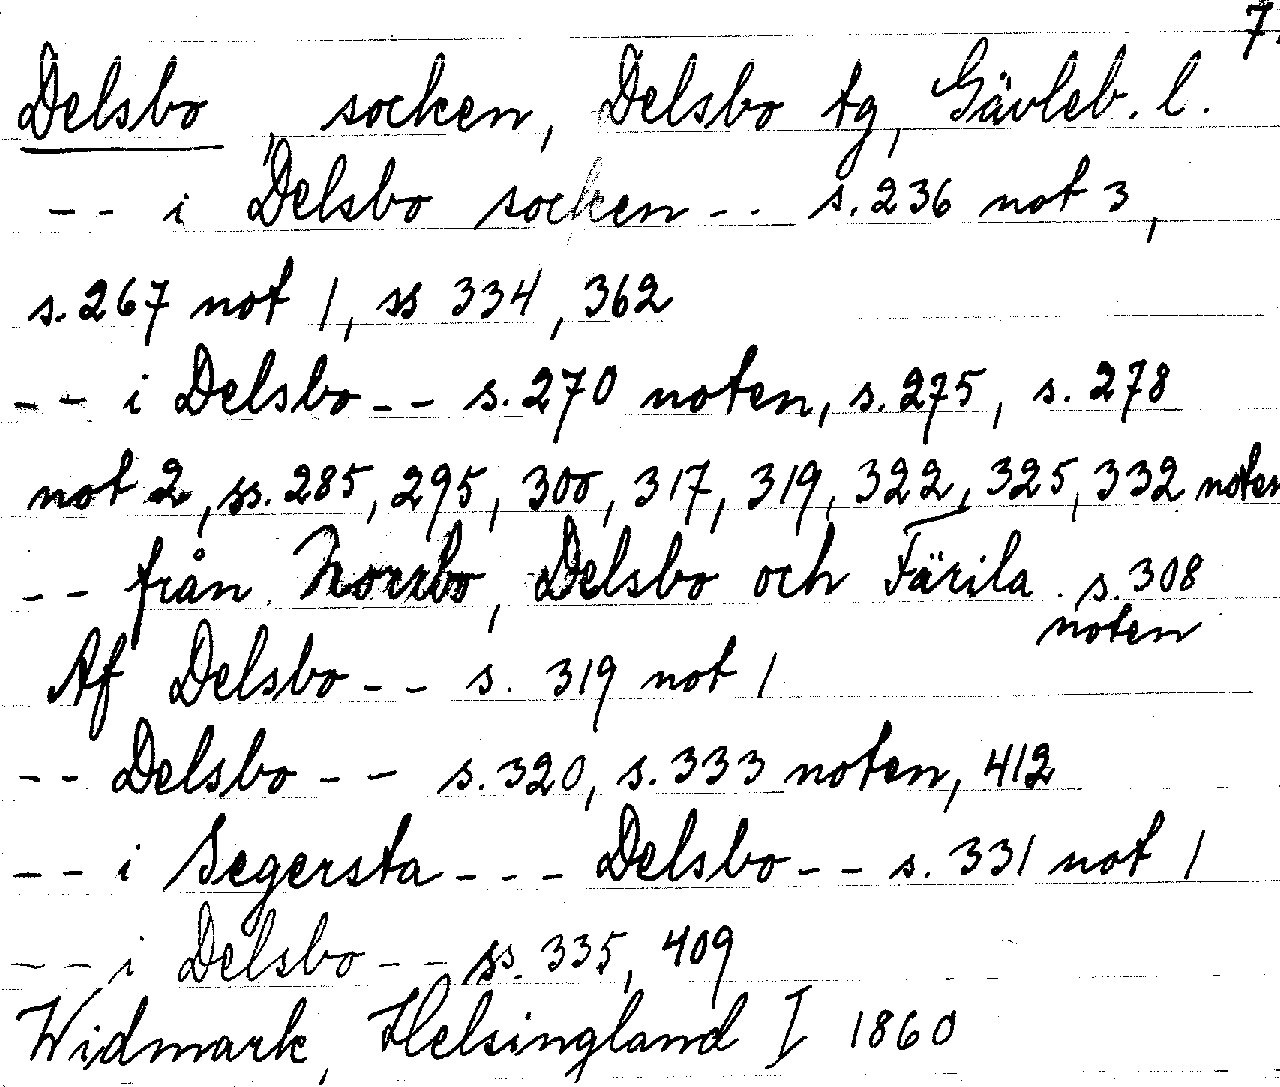 7.
Delsbo, socken, Delsbo tg, Gävleb. l.
-- i Delsbo socken -- s. 236 not 3,
s. 267 not 1, ss 334, 362
-- i Delsbo -- s. 270 noten, s. 275, s. 278
not 2, ss. 285, 295, 300, 317, 319, 322, 325, 332 noten
-- från Norrbo, Delsbo och Färila. s. 308
noten
Af Delsbo -- s. 319 not 1
-- Delsbo -- s. 320, s. 333 noten, 412
-- i Segersta --- Delsbo -- s. 331 not 1
-- i Delsbo -- ss. 335, 409
Widmark, Helsingland I 1860